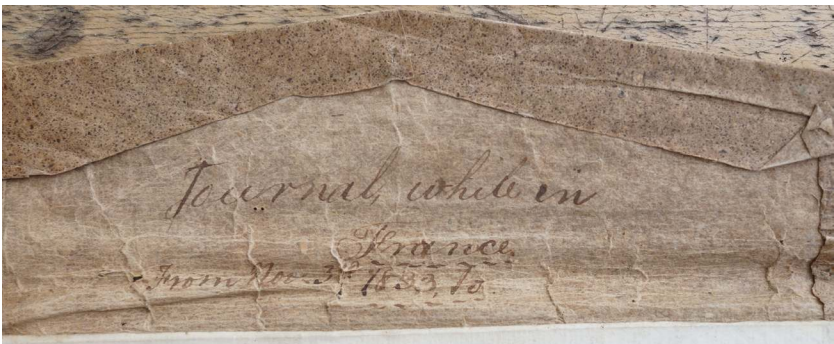 Journal, while in
France.
From Nov. 3rd 1833, To